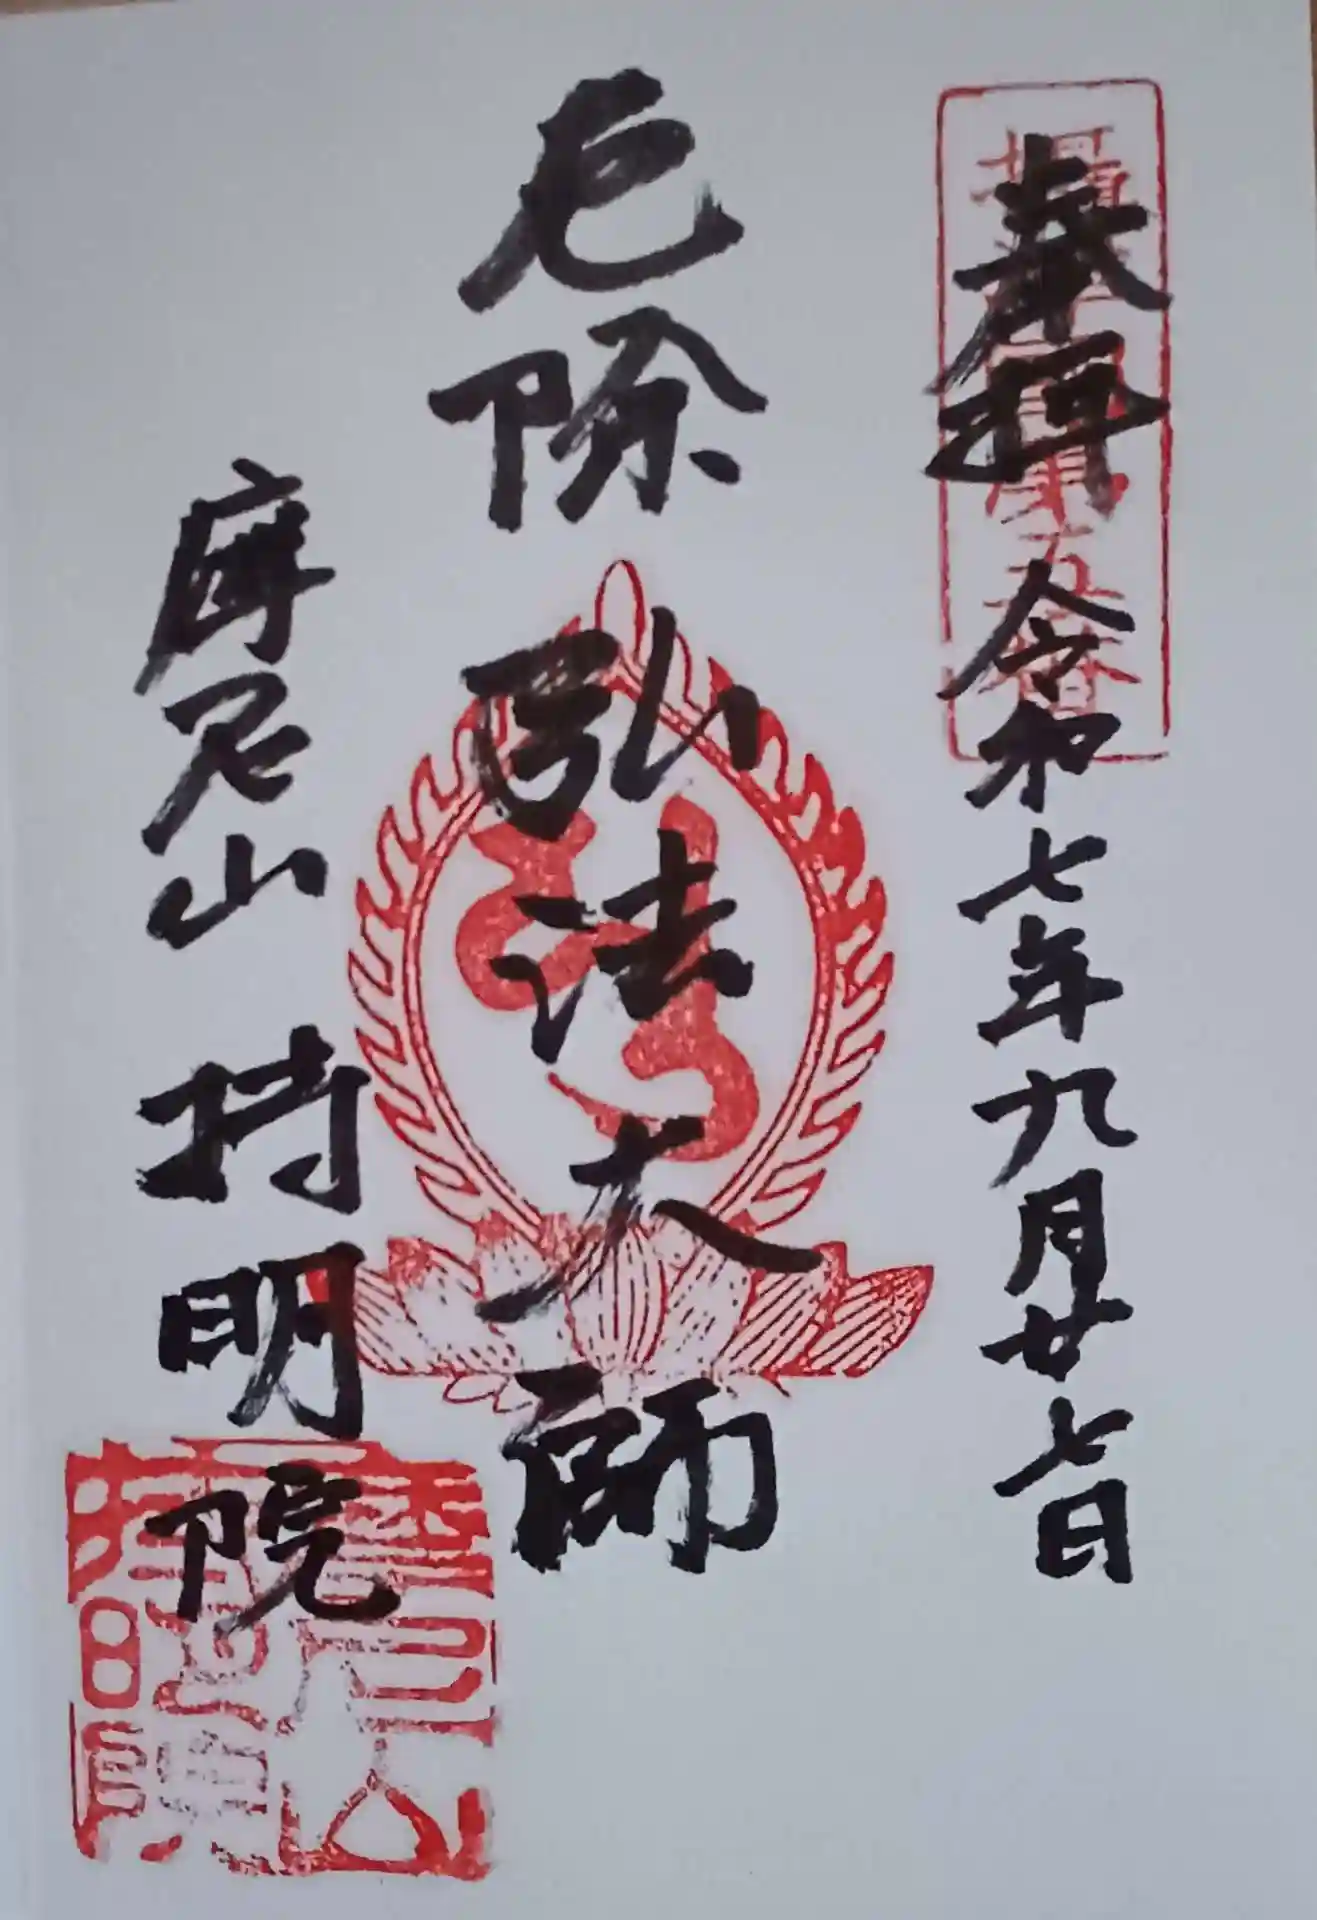 奉拝 令和七年九月廿七日
厄除 弘法大師
摩尼山 持明院
摩尼山持明院